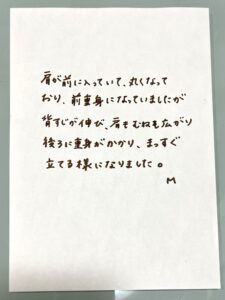 肩が前に入っていて、丸くなって
おり、前重身になっていましたが
背すじが伸び、肩もむねも広がり
後ろに重身がかかり、まっすぐ
立てる様になりました。
M